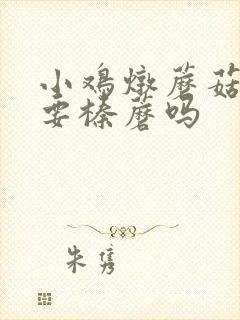 小鸡燉蘑菇
要榛蘑吗
朱隽